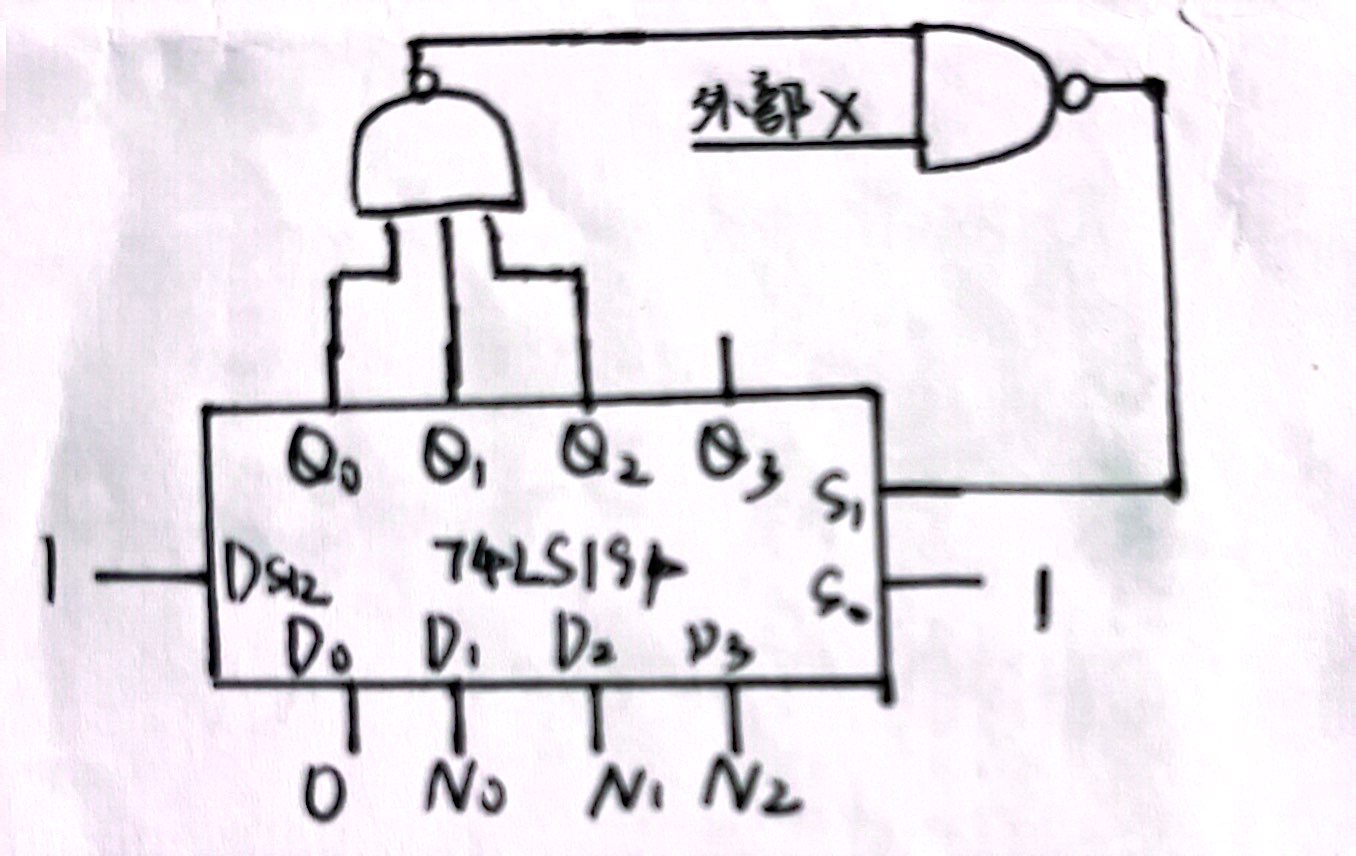 外部 X
Q0 Q1 Q2 Q3
S1
1 DSR 74LS194 S0 1
D0 D1 D2 D3
0 N0 N1 N2